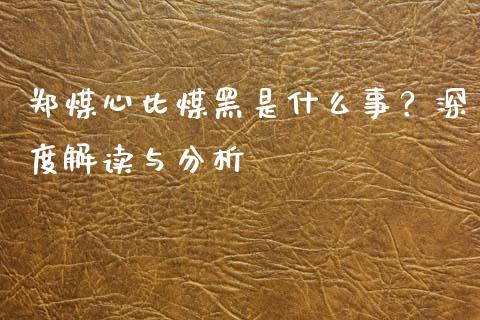 郑煤心比煤黑是什么事？深
度解读与分析